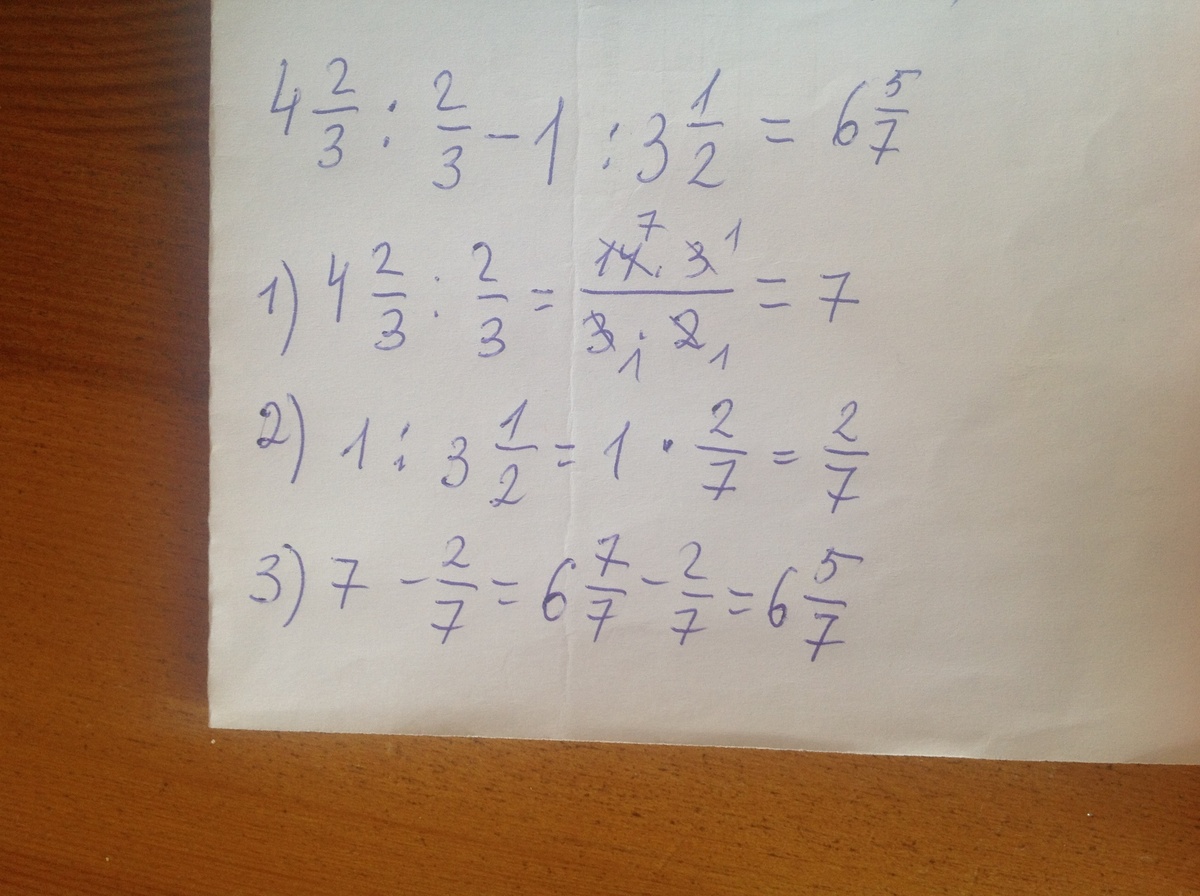 4 2/3 : 2/3 - 1 : 3 1/2 = 6 5/7
1) 4 2/3 : 2/3 = 14 7 · 3 1 / 3 1 · 2 1 = 7
2) 1 : 3 1/2 = 1 · 2/7 = 2/7
3) 7 - 2/7 = 6 7/7 - 2/7 = 6 5/7